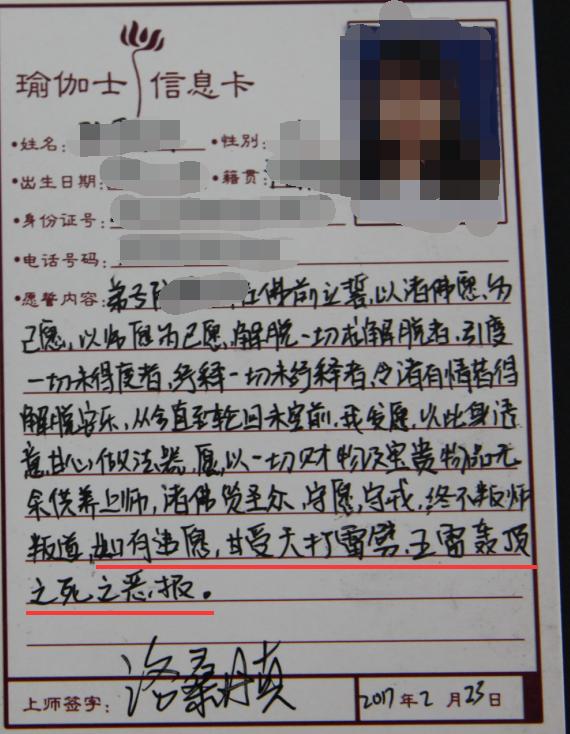 瑜伽士 信息卡
•姓名： •性别：
•出生日期： •籍贯：
•身份证号：
•电话号码：
•愿誓内容：弟子 在佛前立誓，以诸佛愿为
己愿，以师愿为己愿，解脱一切未解脱者，引度
一切未得度者， 一切未 者，令诸有情皆得
解脱安乐，从今直至轮回未空前，我发愿，以此身语
意甘心做法器，愿以一切财物及宝贵物品无
余供养上师，诸佛 圣众，守愿，守戒，终不叛师
叛道，如有违愿，甘受天打雷劈，五雷轰顶
之死之恶报。
上师签字：洛桑丹真 2017年2月23日